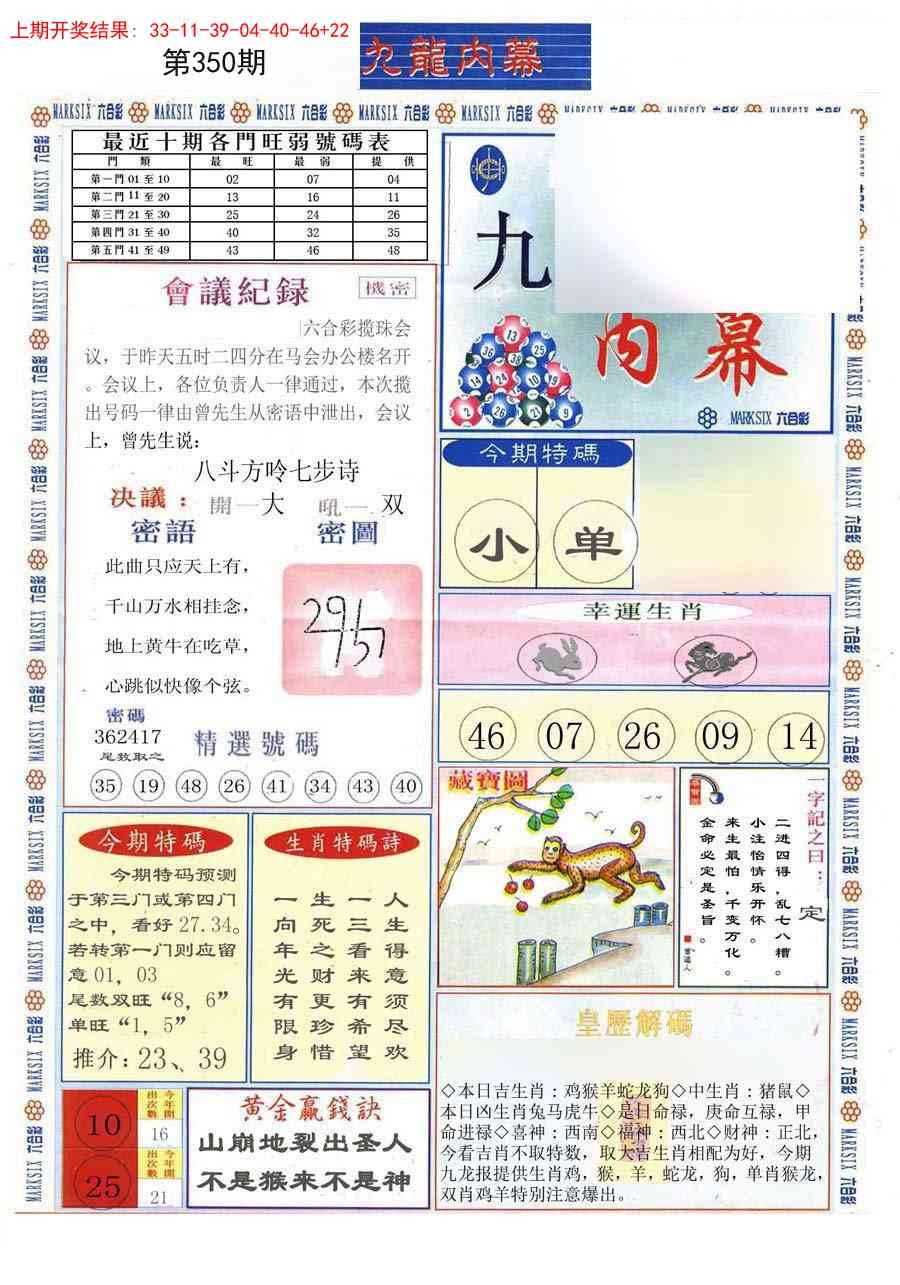 上期开奖结果：33-11-39-04-40-46+22
第350期
九龍内幕
MARKSIX 六合彩 MARKSIX 六合彩 MARKSIX 六合彩 MARKSIX 六合彩 MARKSIX 六合彩
最近十期各門旺弱號碼表
門類 最旺 最弱 提供
第一門 01 至 10 02 07 04
第二門 11 至 20 13 16 11
第三門 21 至 30 25 24 26
第四門 31 至 40 40 32 35
第五門 41 至 49 43 46 48
會議紀録 機密
六合彩揽珠会
议，于昨天五时二四分在马会办公楼名开
。会议上，各位负责人一律通过，本次揽
出号码一律由曾先生从密语中泄出，会议
上，曾先生说：
八斗方唥七步诗
决議：開一大 吼一双
密語 密圖
此曲只应天上有，
千山万水相挂念，
地上黄牛在吃草，
心跳似快像个弦。
密碼
362417
尾数取之
精選號碼
35 19 48 26 41 34 43 40
九
内幕
13
36 38 25
14 24 10 19
2 26 21 9
MARKSIX 六合彩
今期特碼
小 单
幸運生肖
46 07 26 09 14
藏寶圖
一字記之曰：定
二进四得，乱七八糟。
小注怡情乐开怀。
来生最怕，千变万化。
金命必定是圣旨。
今期特碼
今期特码预测
于第三门或第四门
之中，看好 27.34。
若转第一门则应留
意 01，03
尾数双旺“8，6”
单旺“1，5”
推介：23、39
生肖特碼詩
一生一人
向死三生
年之看得
光财来意
有更有须
限珍希尽
身惜望欢
10 今年開出次數 16
25 今年開出次數 21
黄金贏錢訣
山崩地裂出圣人
不是猴来不是神
皇歷解碼
◇本日吉生肖：鸡猴羊蛇龙狗◇中生肖：猪鼠◇
本日凶生肖兔马虎牛◇是日命禄，庚命互禄，甲
命进禄◇喜神：西南◇福神：西北◇财神：正北，
今看吉肖不取特数，取大吉生肖相配为好，今期
九龙报提供生肖鸡，猴，羊，蛇龙，狗，单肖猴龙，
双肖鸡羊特别注意爆出。